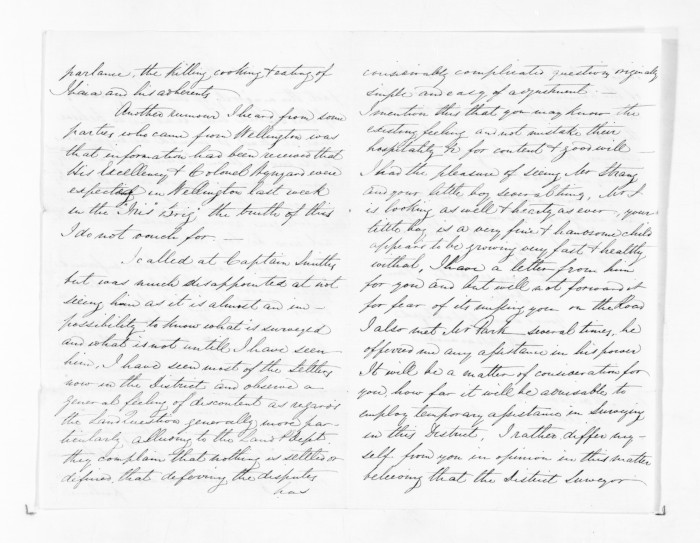 parlance, the killing, cooking & eating of
Ihaia and his adherents
Another rumour I heard from some
parties who came from Wellington was
that information had been received that
His Excellency & Colonel Wynyard were
expected in Wellington last week
in the "Iris" Brig the truth of this
I do not vouch for. —
I called at Captain Smiths
but was much disappointed at not
seeing him as it is almost an im-
possibility to know what is surveyed
and what is not until I have seen
him, I have seen most of the Settlers
now in the District and observe a
general feeling of discontent as regards
the Land Question generally more par-
ticularly alluding to the Land Dept.
they complain that nothing is settled or
defined, that deferring the disputes
has
considerably complicated questions originally
simple and easy of adjustment. —
I mention this that you may know the
existing feeling and not mistake their
hospitality &c for content & good will —
I had the pleasure of seeing Mr Strang
and your little boy several times, Mr S
is looking as well & hearty as ever, your
little boy is a very fine & handsome child
appears to be growing very fast & healthy
withal, I have a letter from him
for you and but will not forward it
for fear of its missing you on the Road
I also met Mr Park several times, he
offered me any assistance in his power
It will be a matter of consideration for
you, how far it will be advisable to
employ temporary assistance in Surveying
in this District, I rather differ my-
self from you in opinion in this matter
believing that the District Surveyor